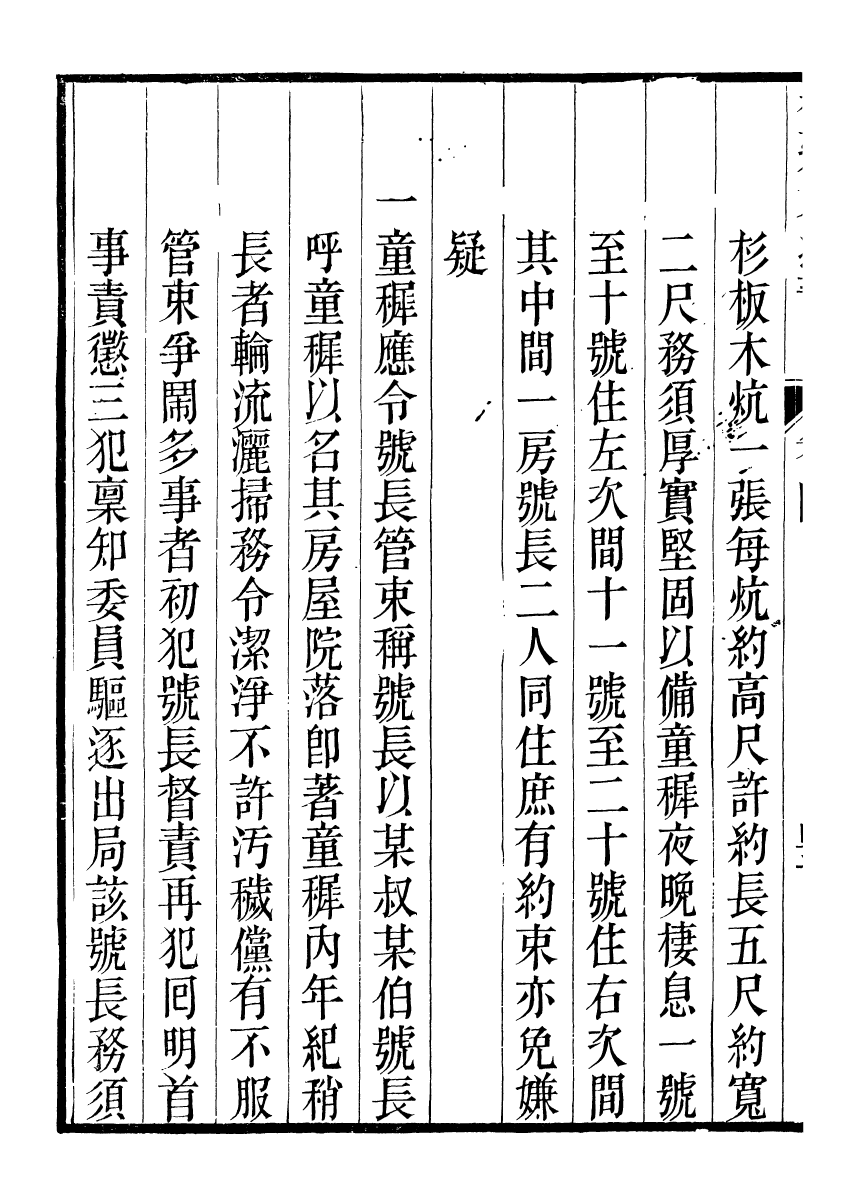 杉板木炕一張每炕約高尺許約長五尺約寬
二尺務須厚實堅固以備童穉夜晚棲息一號
至十號住左次間十一號至二十號住右次間
其中間一房號長二人同住庶有約束亦免嫌
疑
一童穉應令號長管束稱號長以某叔某伯號長
呼童穉以名其房屋院落卽著童穉內年紀稍
長者輪流灑掃務令潔淨不許汚穢儻有不服
管束爭鬧多事者初犯號長督責再犯囘明首
事責懲三犯稟知委員驅逐出局該號長務須